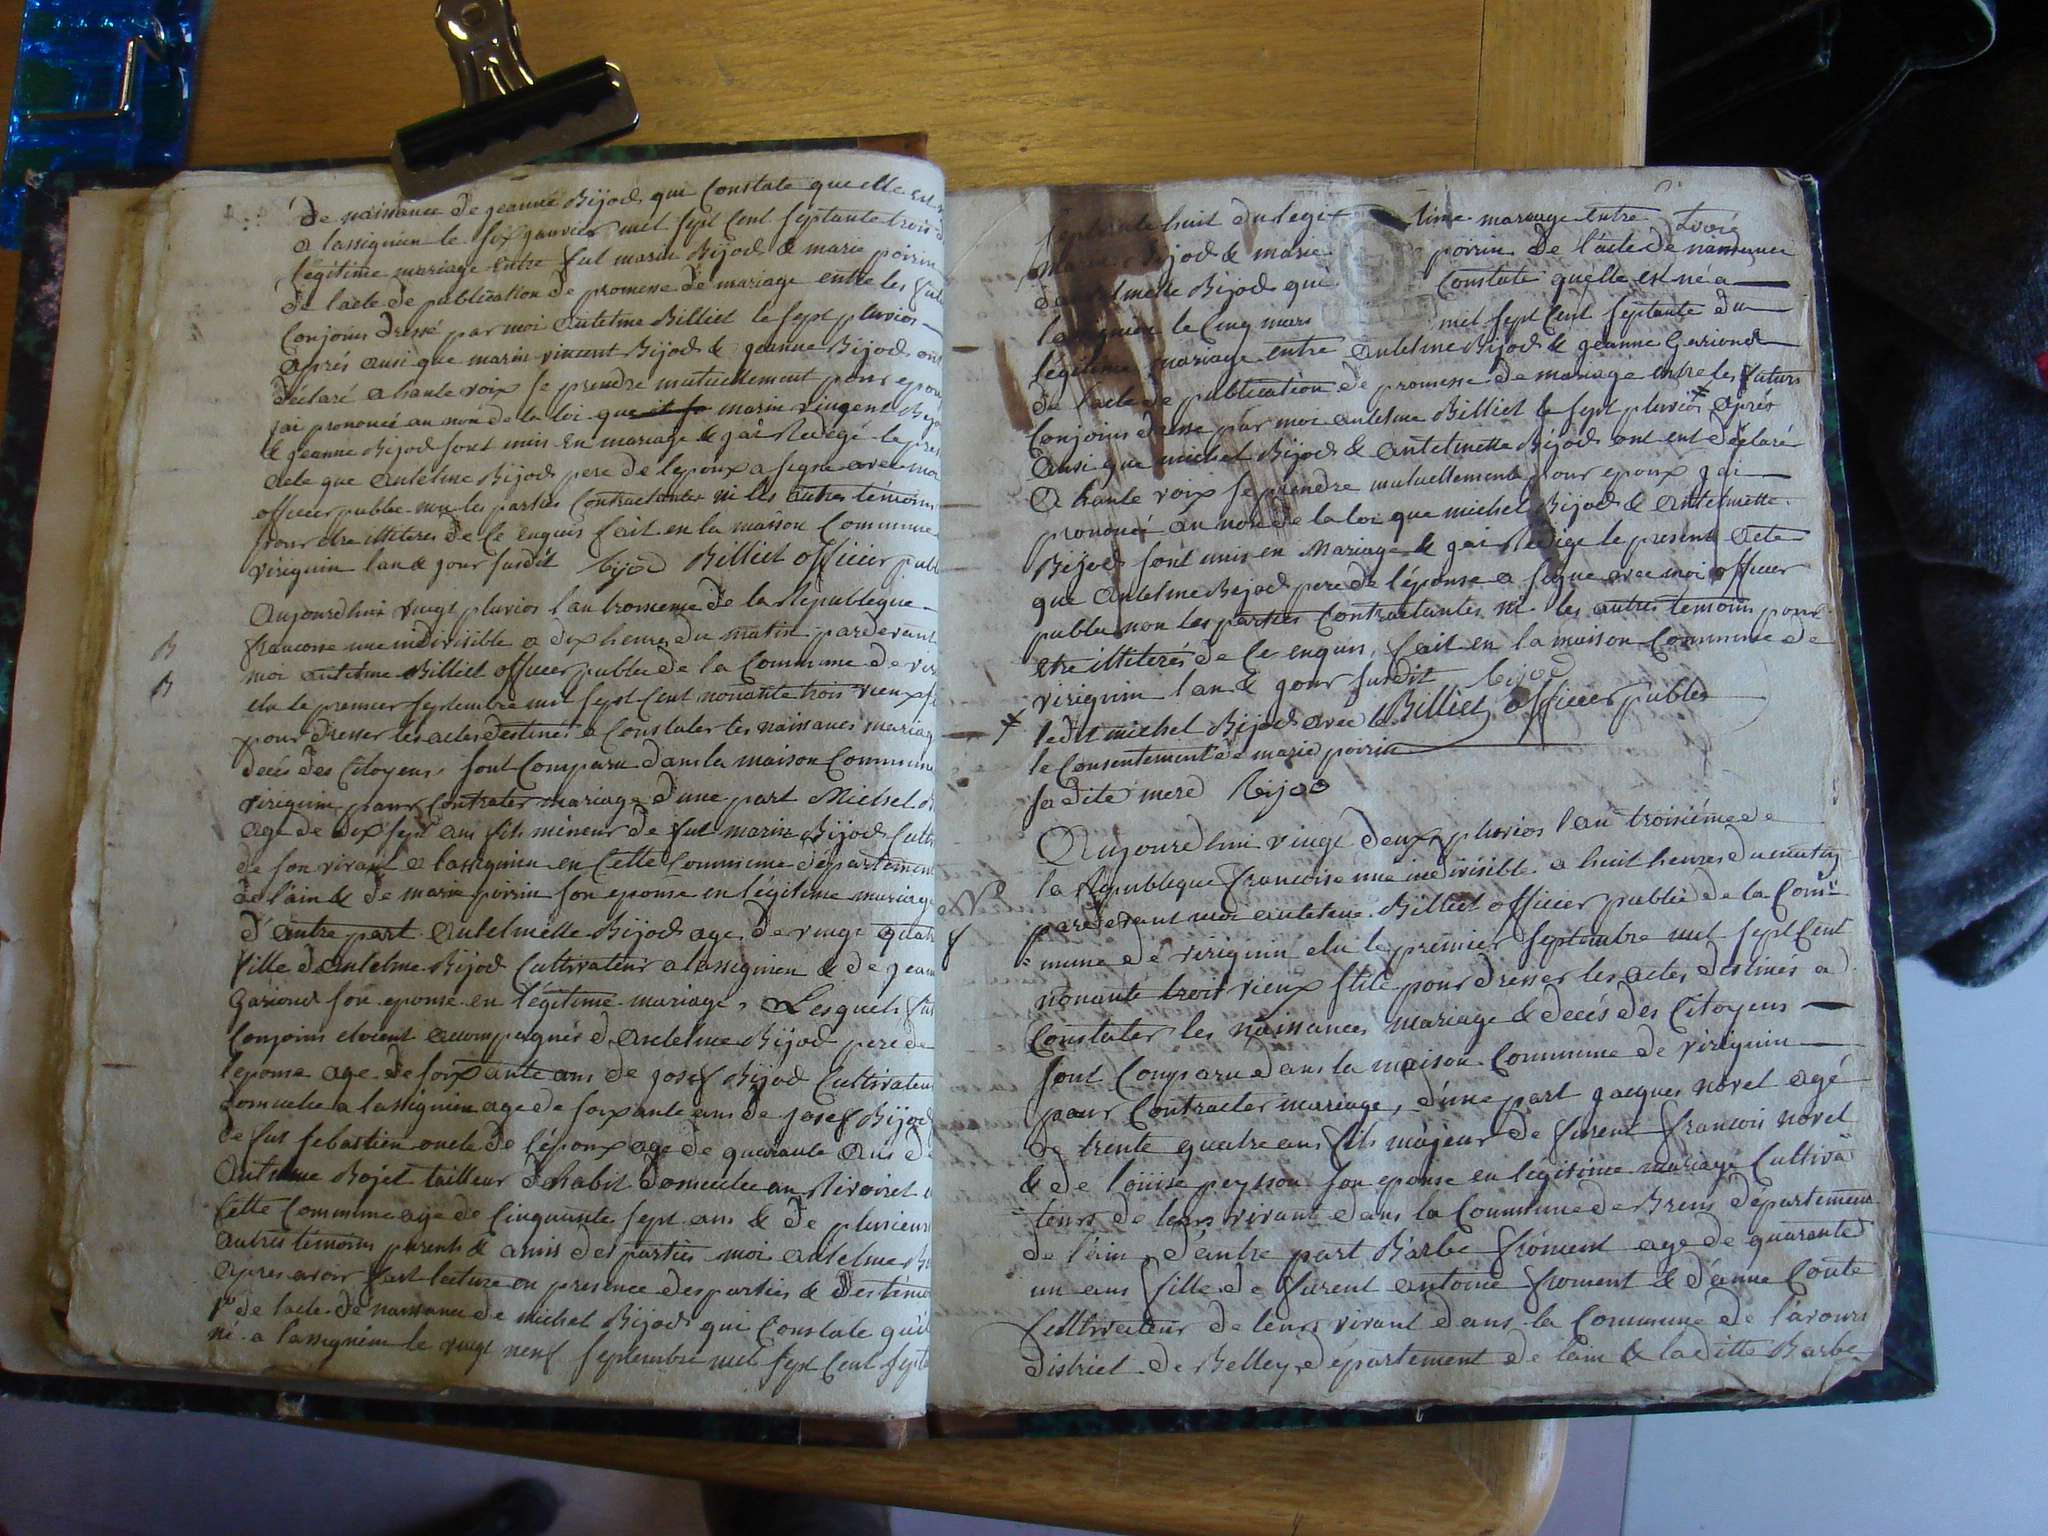 De naissance de jeanne Bijod qui Constate quelle est
a lassignieu le six janvier mil sept Cent septante trois
légitime mariage entre fut marin Bijod & marie poirin
de lacte de publication de promesse de mariage entre les
Conjoins dressé par moi antelme Billiet le sept pluvios
Après ausi que marin vincent Bijod & jeanne Bijod ont
déclaré a haute voix se prendre mutuellement pour epou
jai prononcé au nom de la loi que marin vingent Bijo
& jeanne Bijod sont unis en mariage & jai Redigé le pres
acte que antelme Bijod pere de lepoux a signé avec moi
officier public non les parties Contractantes ni les autres témoins
pour etre illiteres de Ce enquis fait en la maison Commune
viriguin lan & jour susdit bijod Billiet officier publ
Aujourdhui vingt pluvios lan troisieme de la Republique
francoise une indivisible a dix heures du matin pardevant
moi antelme Billiet officier public de la Commune de vir
elu le premier septembre mil sept Cent nonante trois vieux
pour dresser les actes destinés a Constater les naisances mariag
decés des Citoyens, sont Comparu dans la maison Commune
viriguin pour Contracter mariage d'une part Michel
agé de dix sept ans fils mineur de fut marin Bijod Culti
de son vivant a lassignieu en Cette Commune département
de l'ain & de marie poirin son epouse en légitime mariage
d'autre part Antelmette Bijod age de vingt quatr
fille dantelme Bijod Cultivateur a lassignieu & de jean
Gariond son epouse en légitime mariage, Lesquels fut
Conjoins etoient accompagnés d'antelme Bijod pere de
lepouse age de soixante ans de josef Bijod Cultivateur
domicilie a lassignieu age de soixante ans de josef Bijod
de fut sebastien oncle de l'époux age de quarante ans d
Antelme Bojet tailleur d'habit domicilie au Rivoiret
Cette Commune age de Cinquante sept ans & de plusieurs
autres témoins parents & amis des parties moi antelme B
apres avoir fait lecture en presence des parties & des témo
1º de lacte de naissance de michel Bijod qui Constate qu'il
né a lassignieu le vingt neuf septembre mil sept Cent septa
B
B
septante huit du legi time mariage entre
marin Bijod & marie poirin de l'acte de naissance
dantelmette Bijod qui Constate quelle est né a
lassignieu le Cinq mars mil sept Cent septante du
légitime mariage entre antelme Bijod & jeanne Gariond
de lacte de publication de promesse de mariage entre les futurs
Conjoins dressé par moi antelme Billiet le sept pluvios après
ausi que michel Bijod & antelmette Bijod ont ent déclaré
a haute voix se prendre mutuellement pour epoux jai
prononcé au nom de la loi que michel Bijod & antelmette
Bijod sont unis en Mariage & jai Redige le present acte
que antelme Bijod pere de l'épouse a signe avec moi officier
public non les parties Contractantes ni les autres témoins pour
etre illiterés de Ce enquis, fait en la maison Commune de
viriguin lan & jour susdit bijod
ledit michel Bijod avec Billiet officier public
le Consentement de marie poirin
sa dite mere bijod
Aujourdhui vingt deux pluvios lan troisiéme de
la Republique francoise une indivisible a huit heures du matin
pardevant moi antelme Billiet officier public de la Com
mune de viriguin elu le premier septembre mil sept Cent
nonante trois vieux stile pour dresser les actes destinés a
Constater les naissances mariage & decés des Citoyens
sont Comparu dans la maison Commune de viriguin
pour Contracter mariage, d'une part jacques novel agé
de trente quatre ans fils majeur de furent francois novel
& de louise peysson son epouse en légitime mariage Cultiva
teurs de leurs vivant dans la Commune de Brens département
de l'ain, d'autre part Barbe froment age de quarante
un ans fille de furent antoine froment & d'anne Conte
Cultivateur de leurs vivant dans la Commune de l'avours
district de Belley département de lain & la ditte Barbe